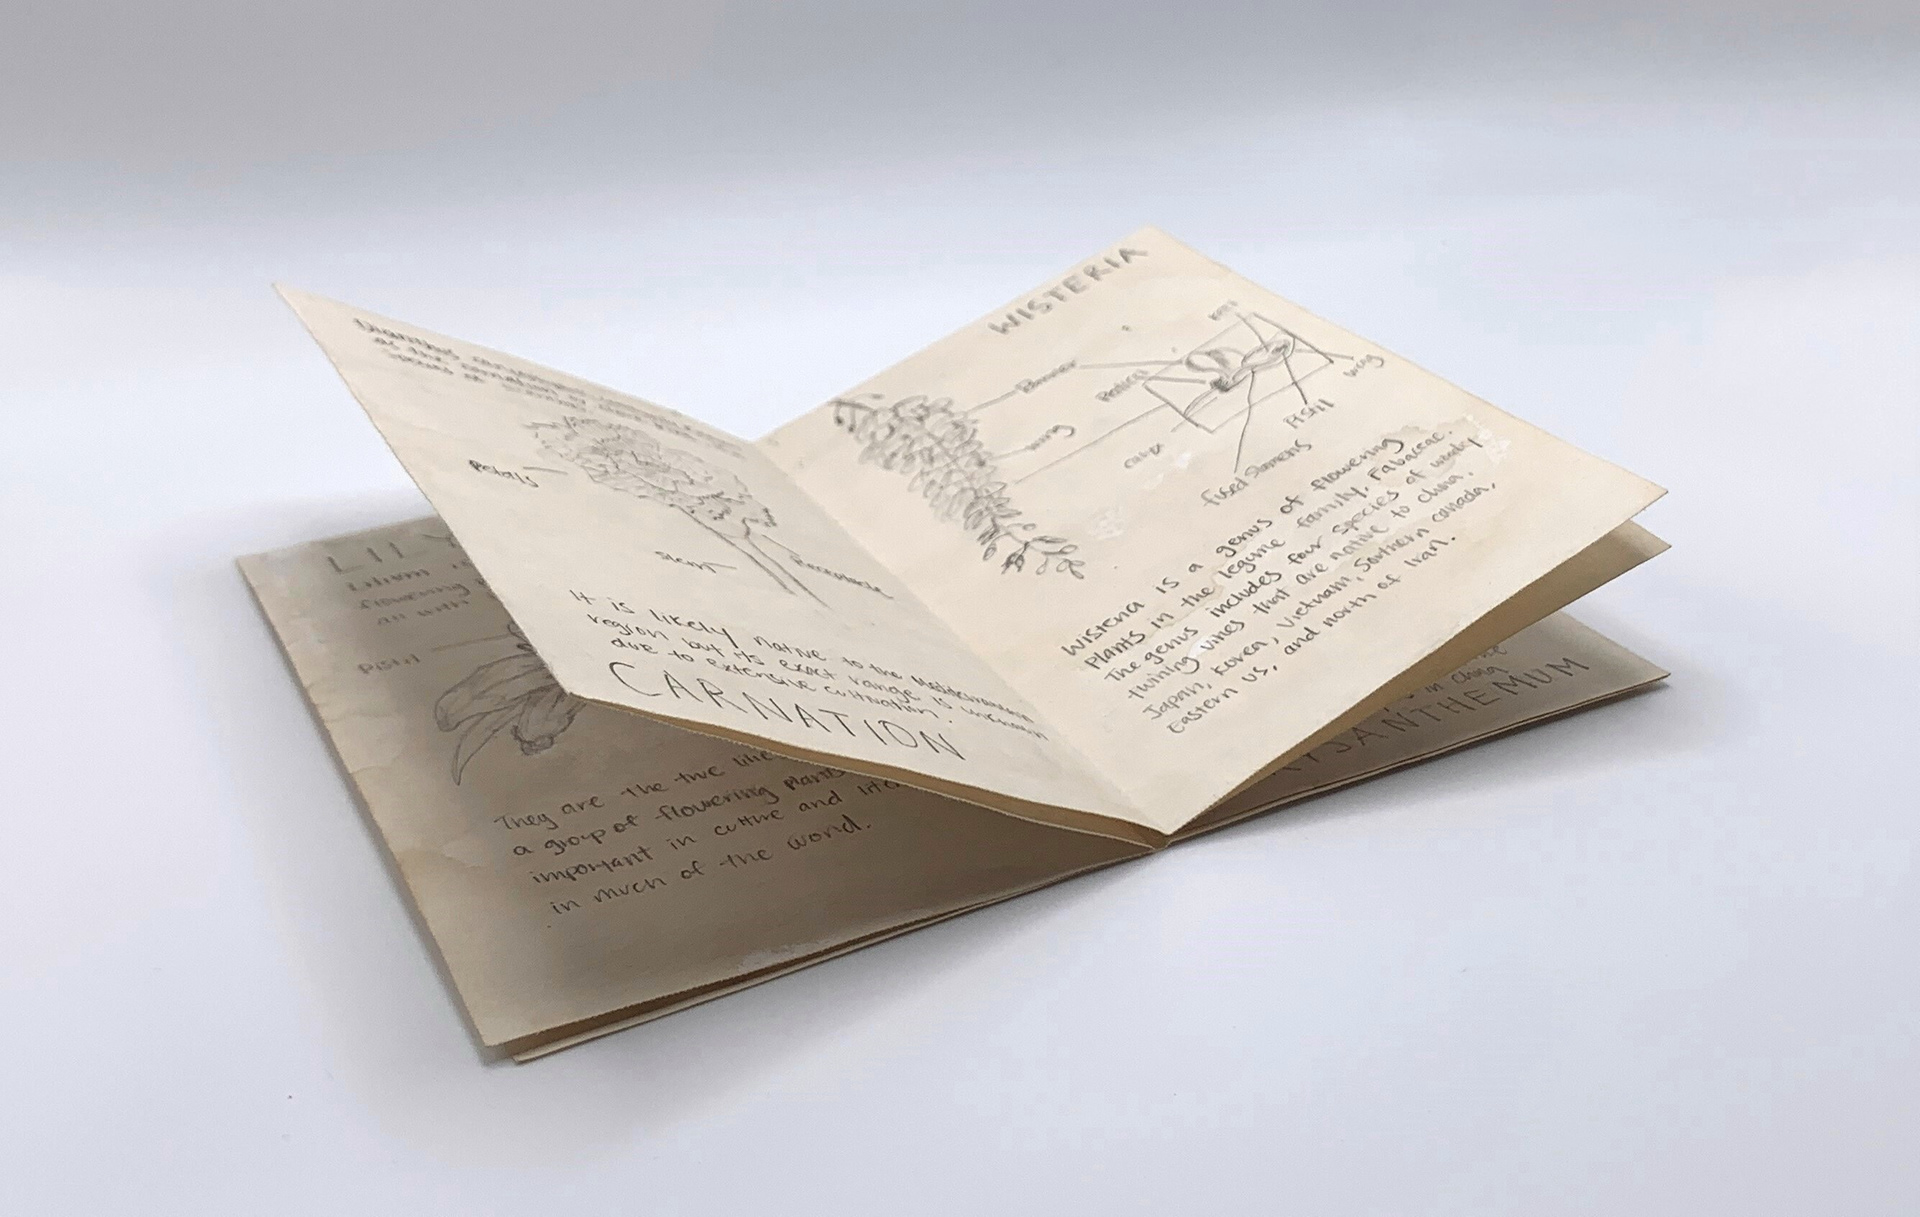 LILY
Lilium is
flowering
all with
Pistil
They are the true lilie
a group of flowering plants
important in culture and liter
in much of the world.
Dianthus caryoph
as the carnation or
species of
Petals
Stem
Receptacle
It is likely native to the Mediterranean
region but its exact range is unknown
due to extensive cultivation.
CARNATION
WISTERIA
Banner
Wing
Pedicel
Calyx
Keel
Wing
Pistil
fused stamens
Wisteria is a genus of flowering
Plants in the legume family, Fabaceae.
The genus includes four species of woody
twining vines that are native to China,
Japan, Korea, Vietnam, Southern Canada,
Eastern US, and north of Iran.
in China
YSANTHEMUM